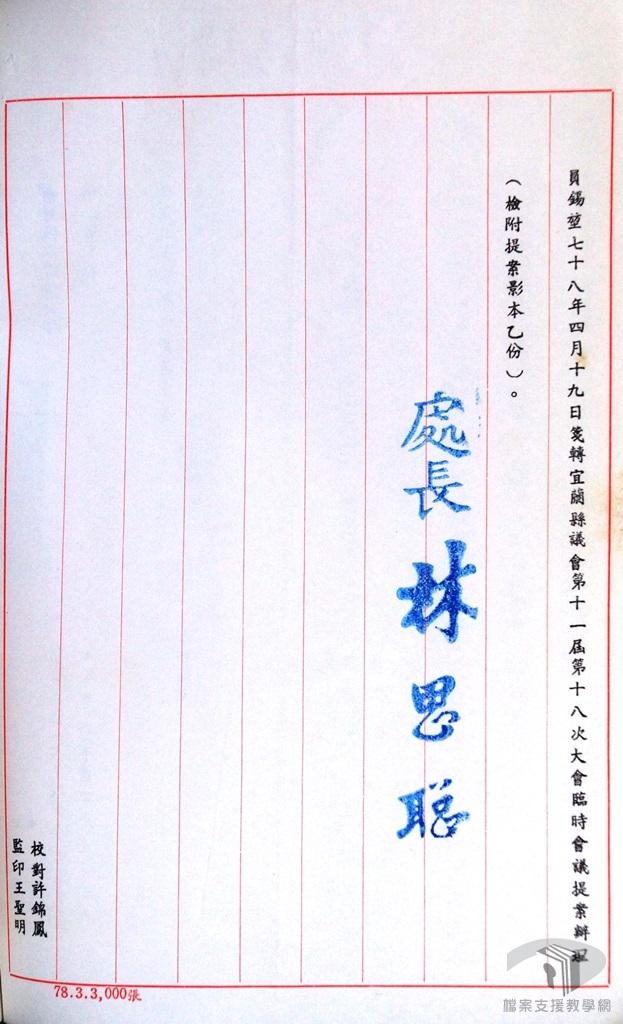 員錫堃七十八年四月十九日箋轉宜蘭縣議會第十一屆第十八次大會臨時會議提案辦理
(檢附提案影本乙份)。
處長林思聰
校對許錦鳳
監印王聖明
78.3.3,000張
檔案支援教學網